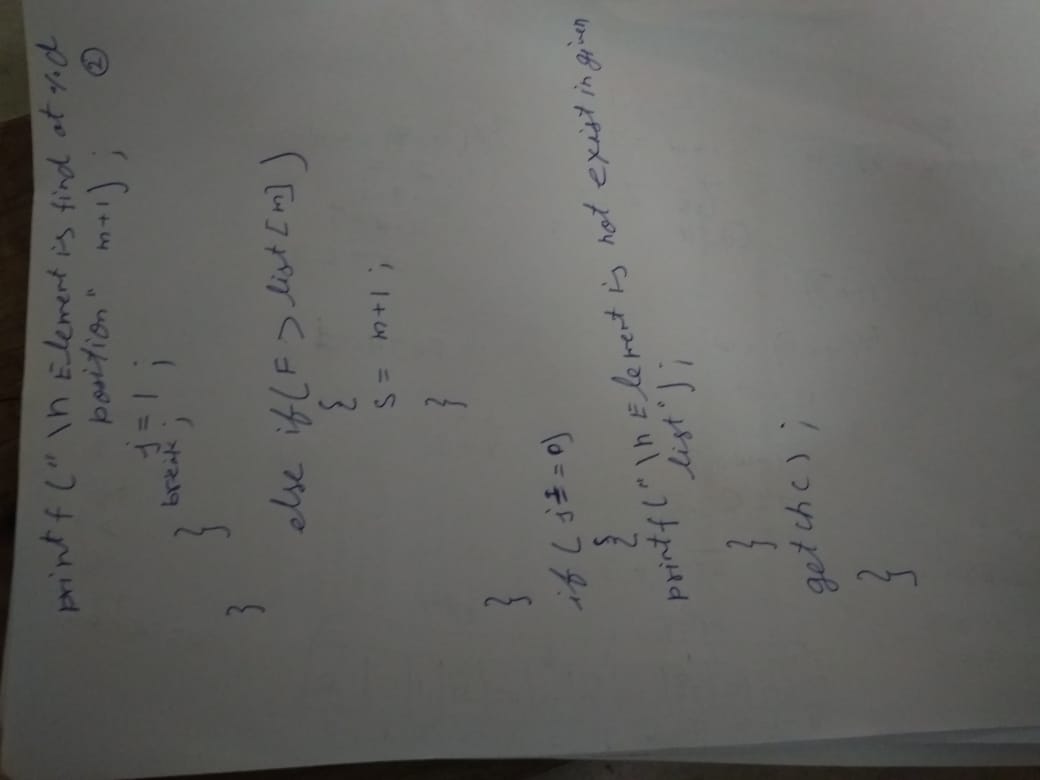 printf("\n Element is find at %d
②
position" m+1);
j=1;
break;
}
}
else if(F > list[m])
{
S = m+1;
}
}
if(j==0)
{
printf("\n Element is not exist in given
list");
}
getch();
}